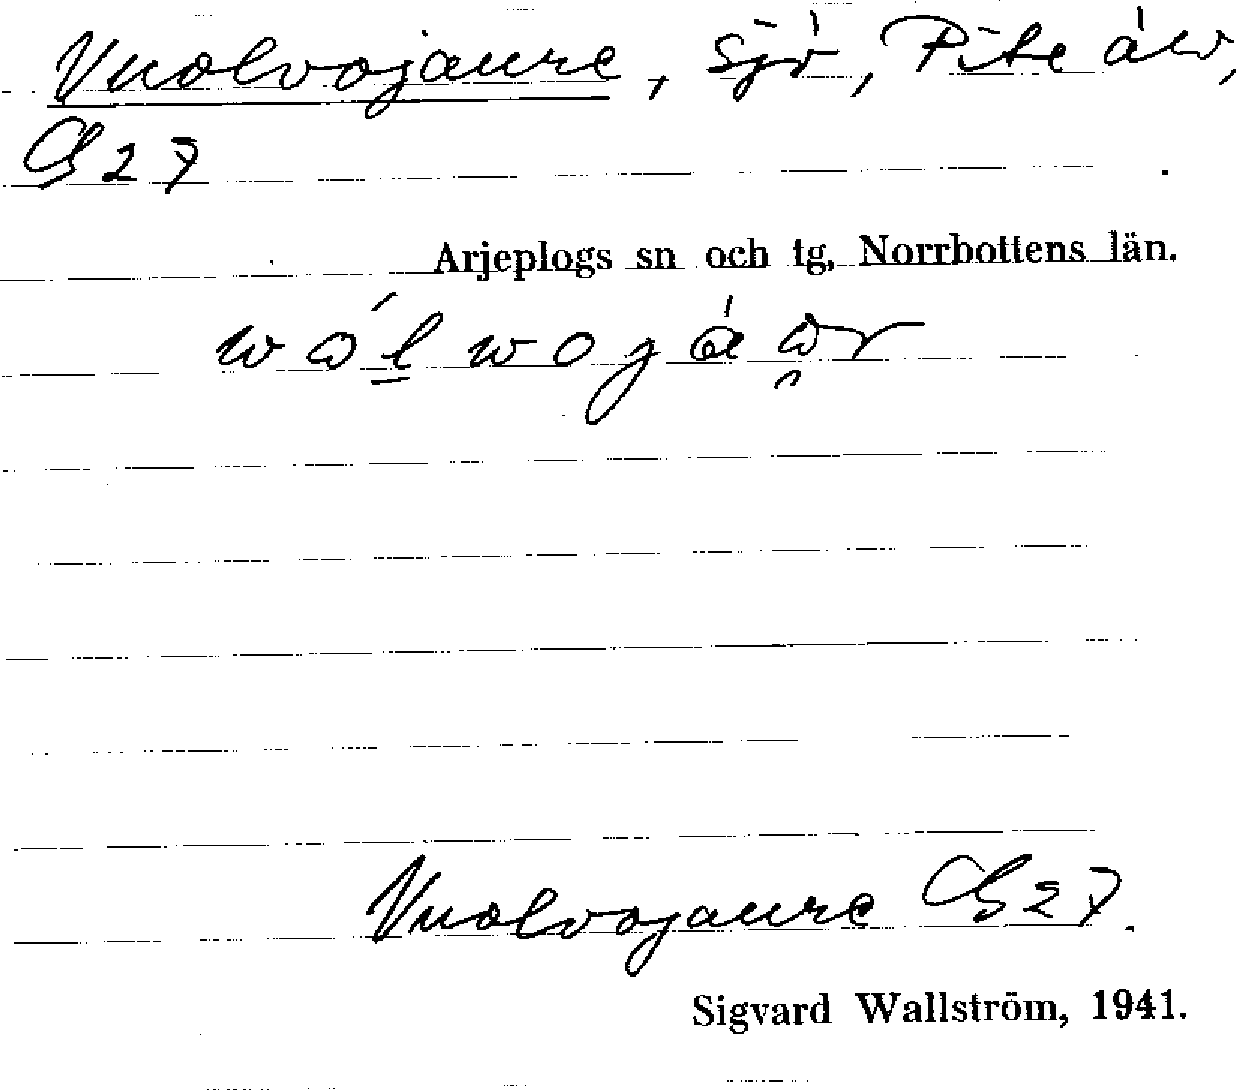 Vuolvojaure, sjö, Pite älv,
G 27
Arjeplogs sn och tg, Norrbottens län.
Vuolvojaure G 27.
Sigvard Wallström, 1941.